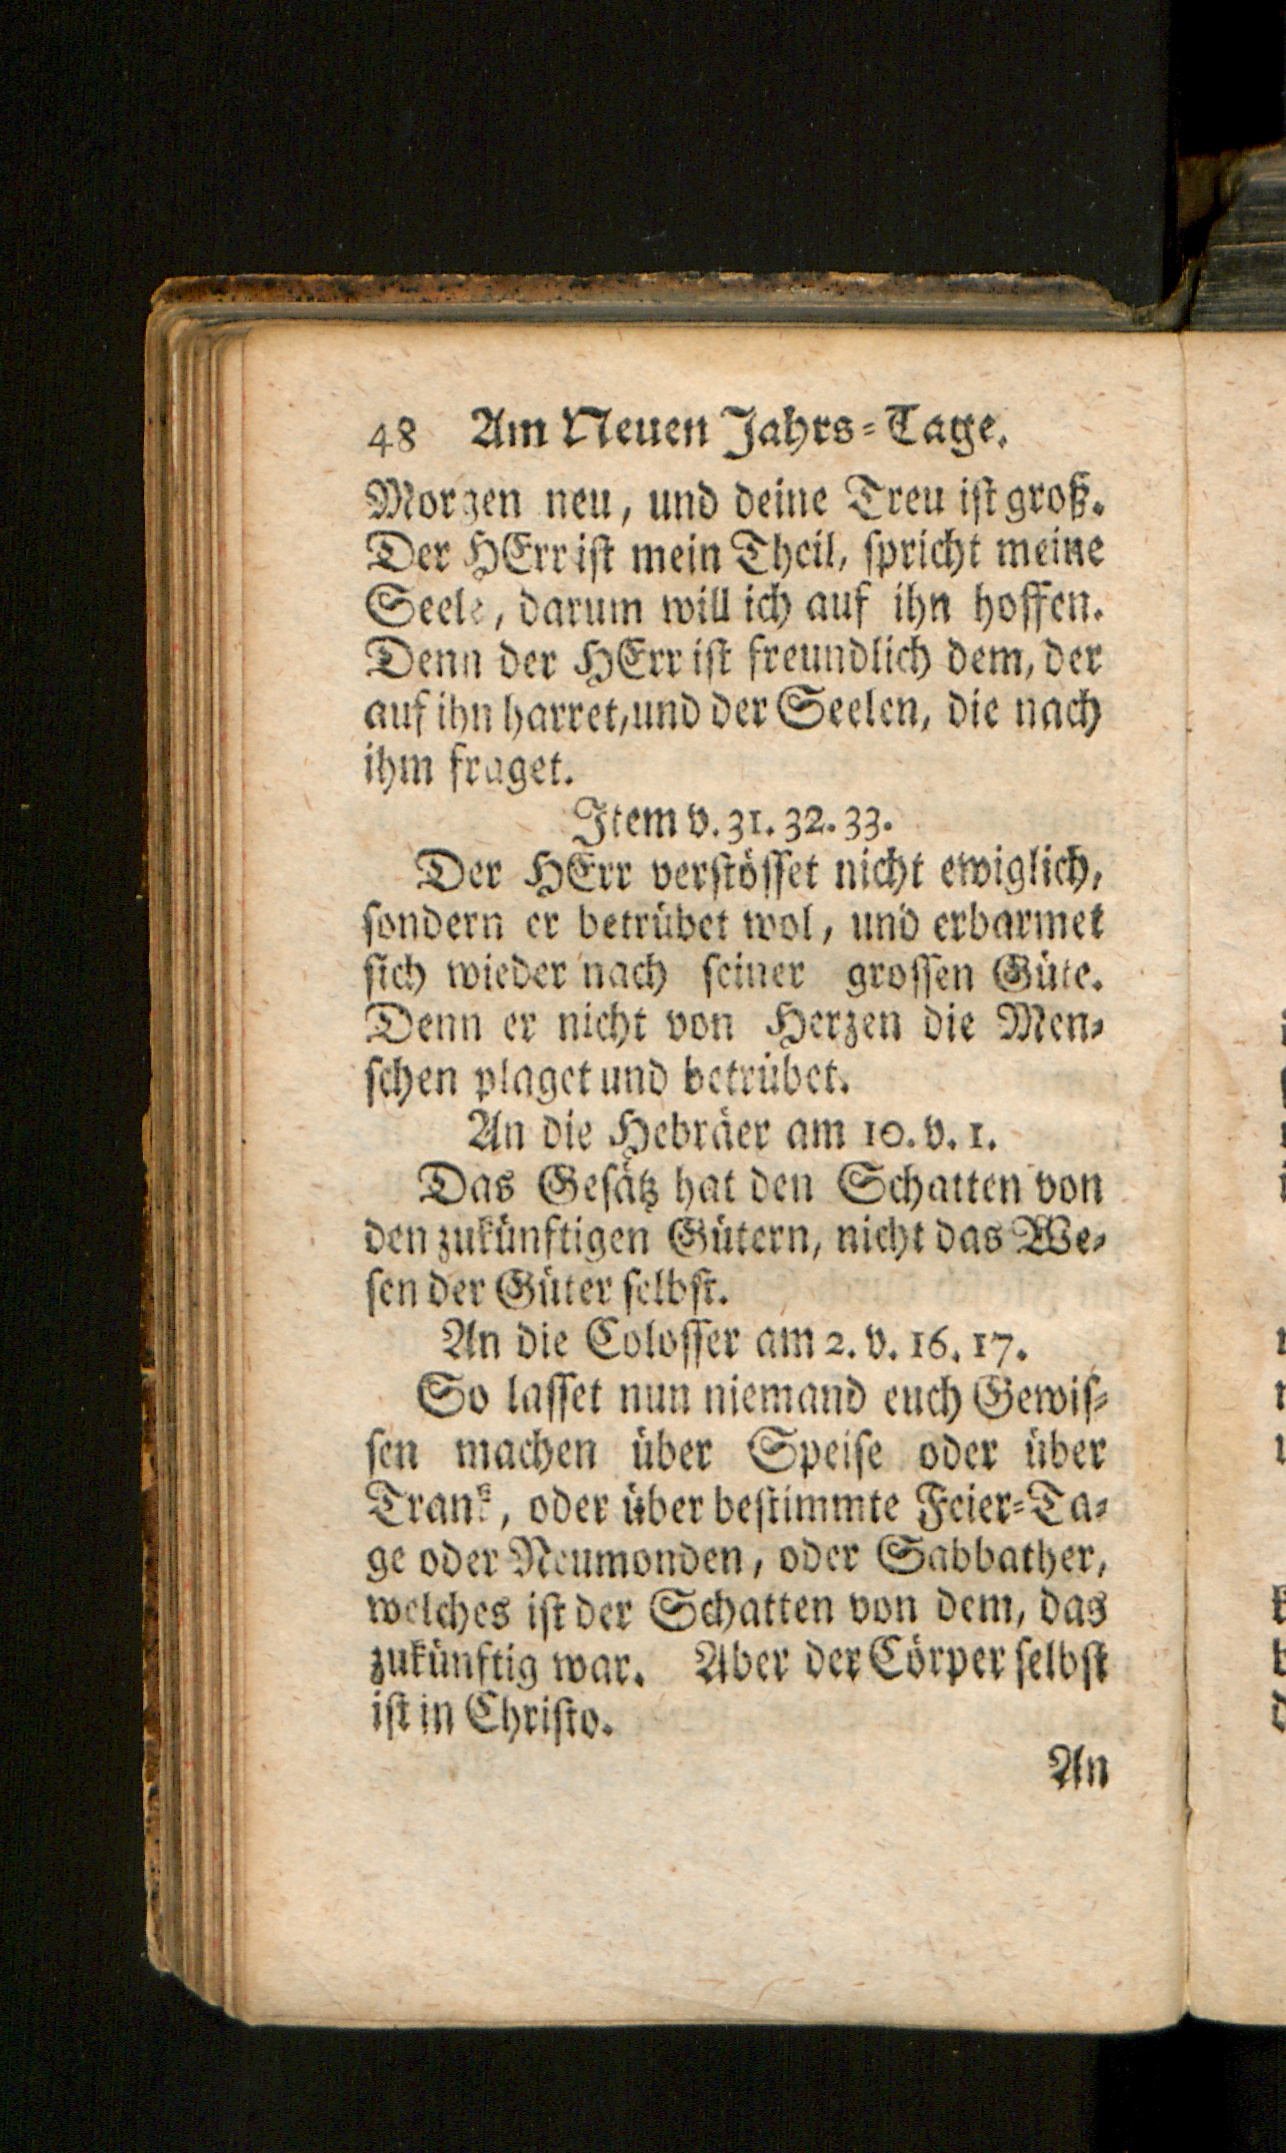 48 Am Neuen Jahrs-Tage.
Morgen neu, und deine Treu ist groß.
Der HErr ist mein Theil, spricht meine
Seele, darum will ich auf ihn hoffen.
Denn der HErr ist freundlich dem, der
auf ihn harret, und der Seelen, die nach
ihm fraget.
Item v. 31. 32. 33.
Der HErr verstösset nicht ewiglich,
sondern er betrübet wol, und erbarmet
sich wieder nach seiner grossen Güte.
Denn er nicht von Herzen die Men-
schen plaget und betrübet.
An die Hebräer am 10. v. 1.
Das Gesätz hat den Schatten von
den zukünftigen Gütern, nicht das We-
sen der Güter selbst.
An die Colosser am 2. v. 16. 17.
So lasset nun niemand euch Gewis-
sen machen über Speise oder über
Trank, oder über bestimmte Feier-Ta-
ge oder Neumonden, oder Sabbather,
welches ist der Schatten von dem, das
zukünftig war. Aber der Cörper selbst
ist in Christo.
An